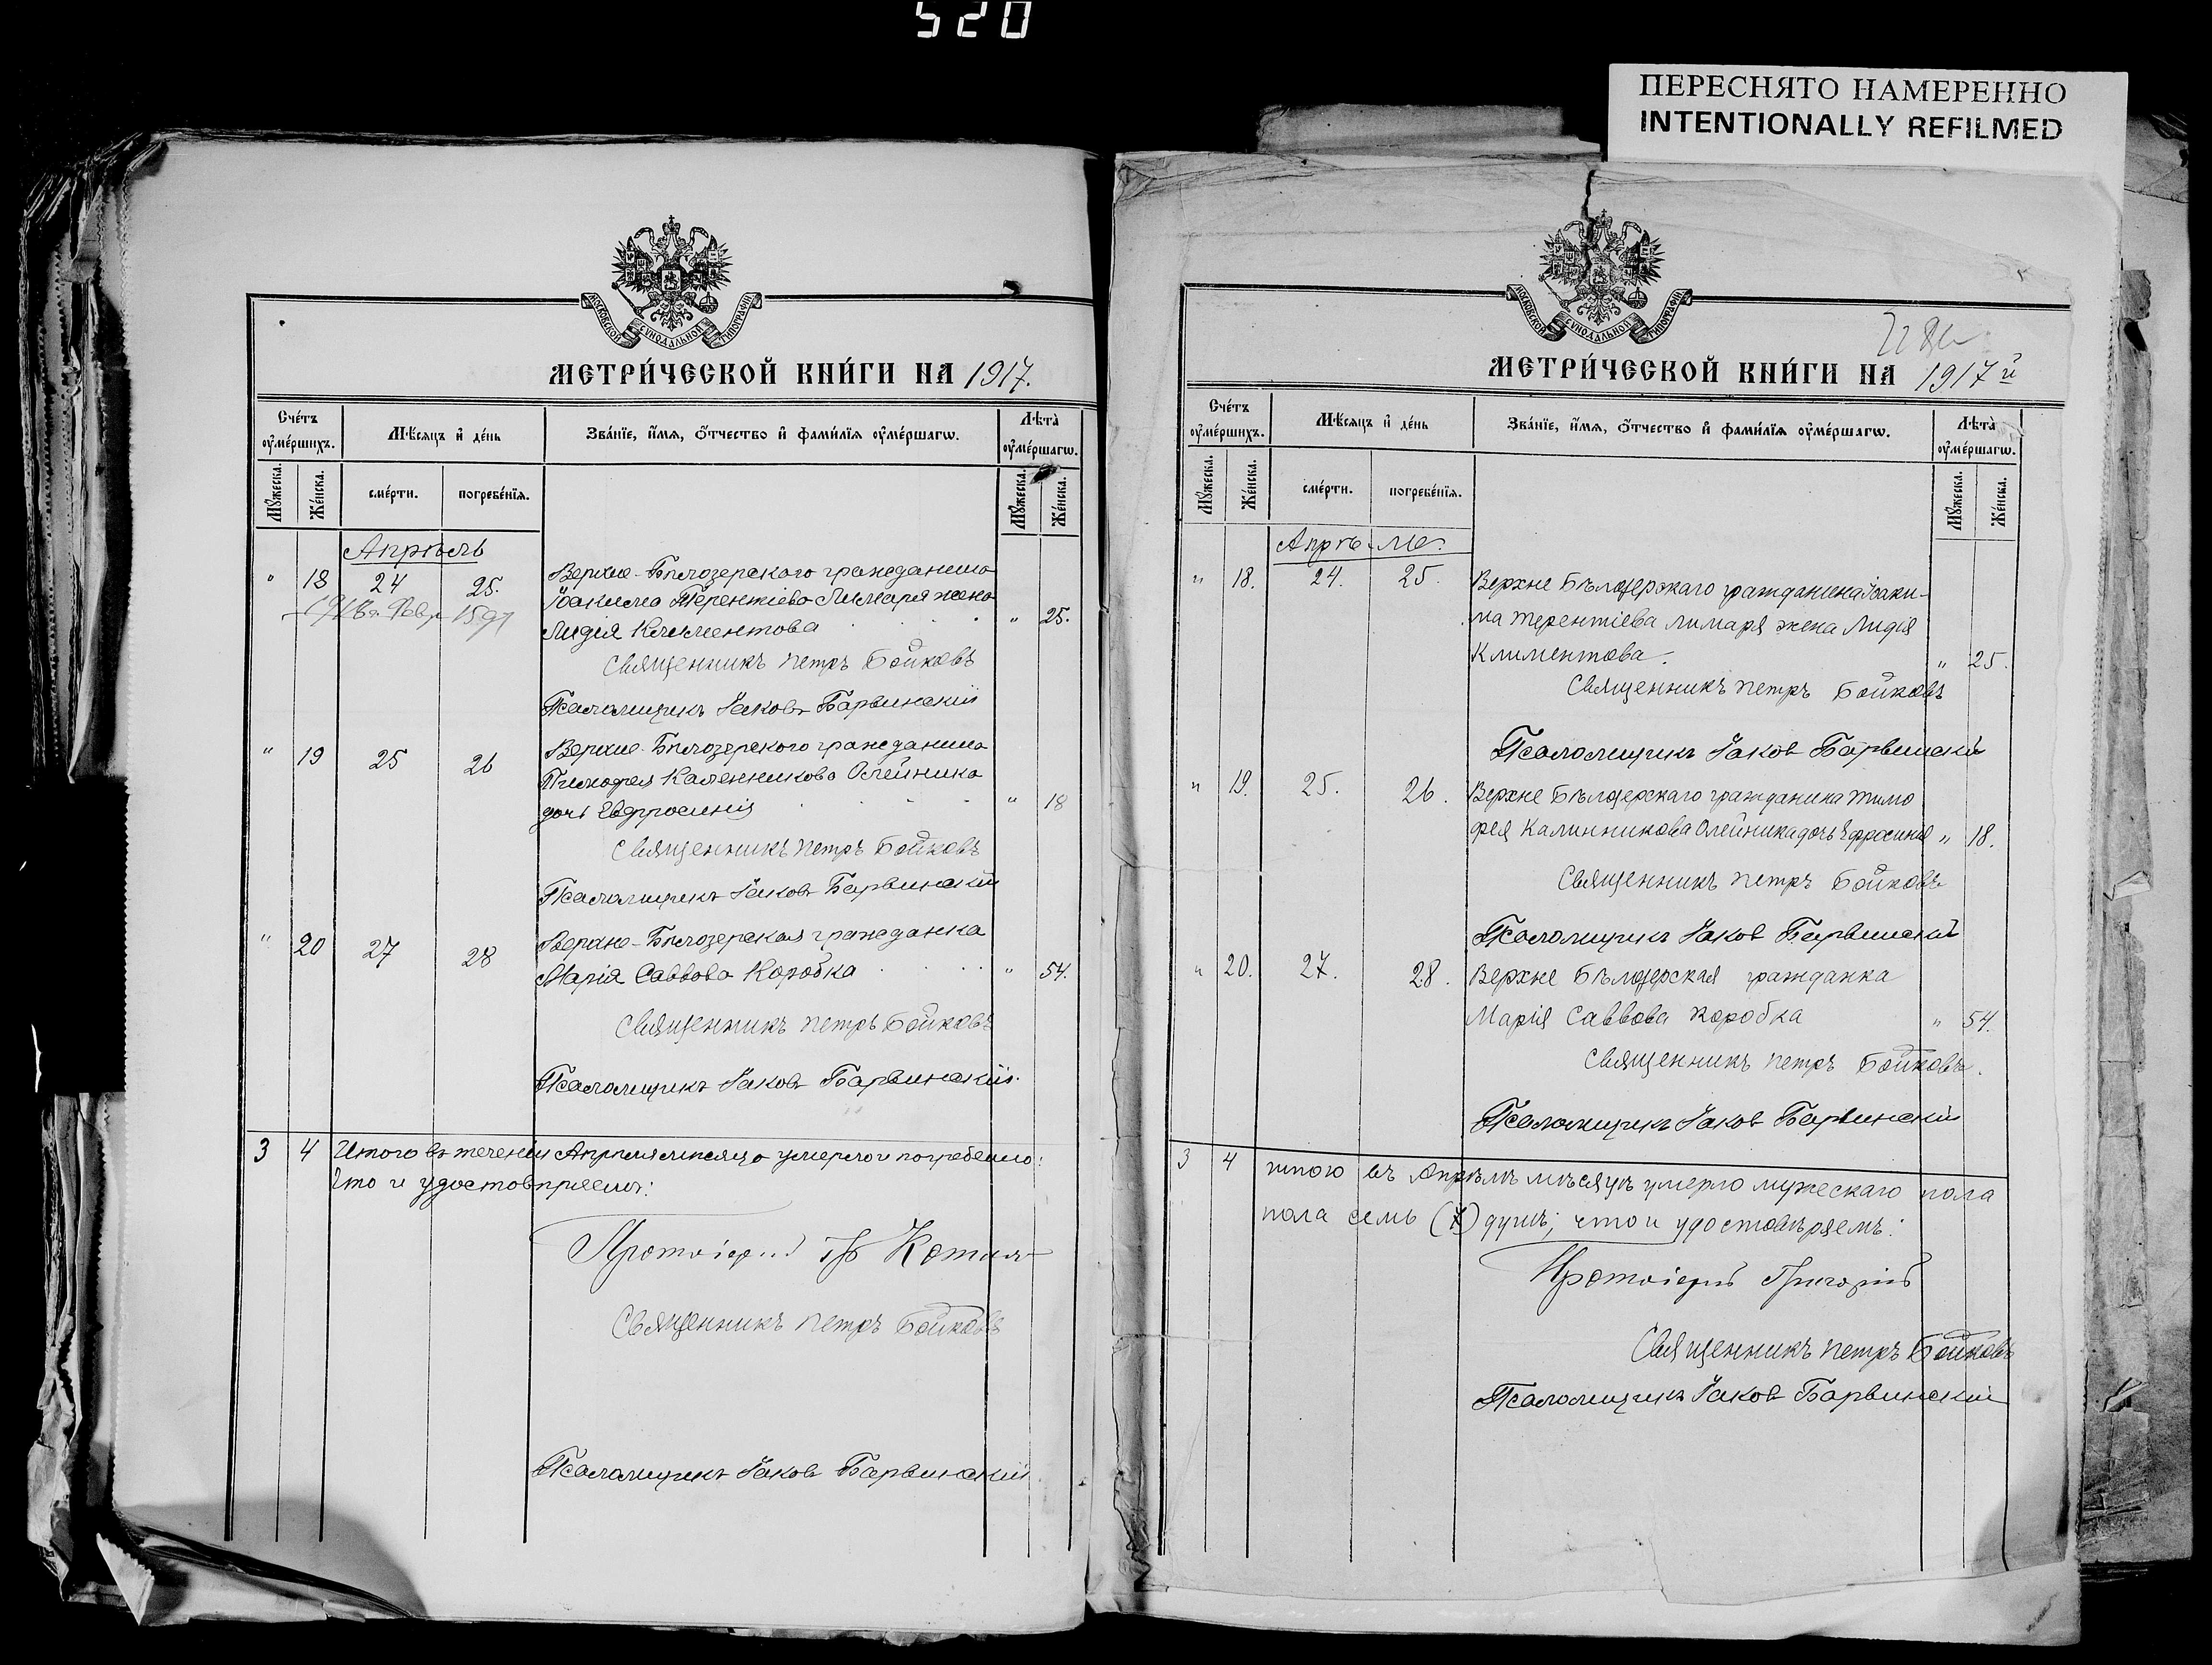 520
ПЕРЕСНЯТО НАМЕРЕННО
INTENTIONALLY REFILMED
МОСКОВСКОЙ СѴНОДАЛЬНОЙ ТИПОГРАФІИ
МЕТРИ́ЧЕСКОЙ КНИ́ГИ НА 1917.
Сче́тъ ᲂу҆ме́ршихъ.
Мѣ́сяцъ и҆ де́нь
Зва́нїе, и҆́мя, ѻ҆́тчество и҆ фами́лїя ᲂу҆ме́ршагѡ.
Лѣта̀ ᲂу҆ме́ршагѡ.
Мꙋ́жеска.
Же́нска.
сме́рти.
погребе́нїя.
Мꙋ́жеска.
Же́нска.
Апрѣль
" 18 24 25. Верхне-Бѣлозерского гражданина
Іоакима Терентіева Лимаря жена
Лидія Климентова " 25.
Священникъ Петръ Бойковъ
Псаломщикъ Іаковъ Барвинскій
" 19 25 26 Верхне-Бѣлозерского гражданина
Тимофея Калинникова Олейника
дочь Евфросинія " 18
Священникъ Петръ Бойковъ
Псаломщикъ Іаковъ Барвинскій
" 20 27 28 Верхне-Бѣлозерская гражданка
Марія Саввова Коробка " 54.
Священникъ Петръ Бойковъ
Псаломщикъ Іаковъ Барвинскій.
3 4 Итого въ теченіи Апрѣля мѣсяца умерло и погребено:
Что и удостовѣряемъ:
Протоіерей
Священникъ Петръ Бойковъ
Псаломщикъ Іаковъ Барвинскій.
МОСКОВСКОЙ СѴНОДАЛЬНОЙ ТИПОГРАФІИ
МЕТРИ́ЧЕСКОЙ КНИ́ГИ НА 1917й
Сче́тъ ᲂу҆ме́ршихъ.
Мѣ́сяцъ и҆ де́нь
Зва́нїе, и҆́мя, ѻ҆́тчество и҆ фами́лїя ᲂу҆ме́ршагѡ.
Лѣта̀ ᲂу҆ме́ршагѡ.
Мꙋ́жеска.
Же́нска.
сме́рти.
погребе́нїя.
Мꙋ́жеска.
Же́нска.
Апрѣль.
" 18. 24. 25. Верхне Бѣлозерскаго гражданина Іоаки-
ма Терентіева Лимаря жена Лидія
Климентова. " 25.
Священникъ Петръ Бойковъ
Псаломщикъ Іаковъ Барвинскій
" 19. 25. 26. Верхне Бѣлозерскаго гражданина Тимо
фея Калинникова Олейника дочь Ефросинія " 18.
Священникъ Петръ Бойковъ
Псаломщикъ Іаковъ Барвинскій
" 20. 27. 28. Верхне Бѣлозерская гражданка
Марія Саввова Коробка " 54.
Священникъ Петръ Бойковъ.
Псаломщикъ Іаковъ Барвинскій
3 4 итого въ Апрѣлѣ мѣсяцѣ умерло мужескаго пола
пола семь (7) душъ; что и удостовѣряемъ:
Протоіерей Григорій
Священникъ Петръ Бойковъ
Псаломщикъ Іаковъ Барвинскій